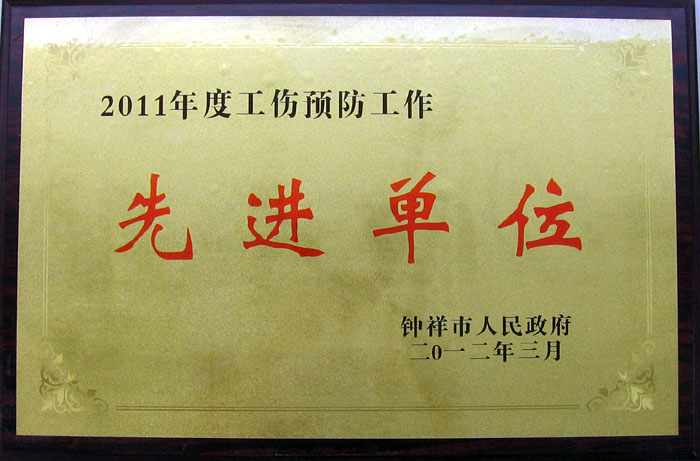 2011年度工伤预防工作
先进单位
钟祥市人民政府
二0一二年三月